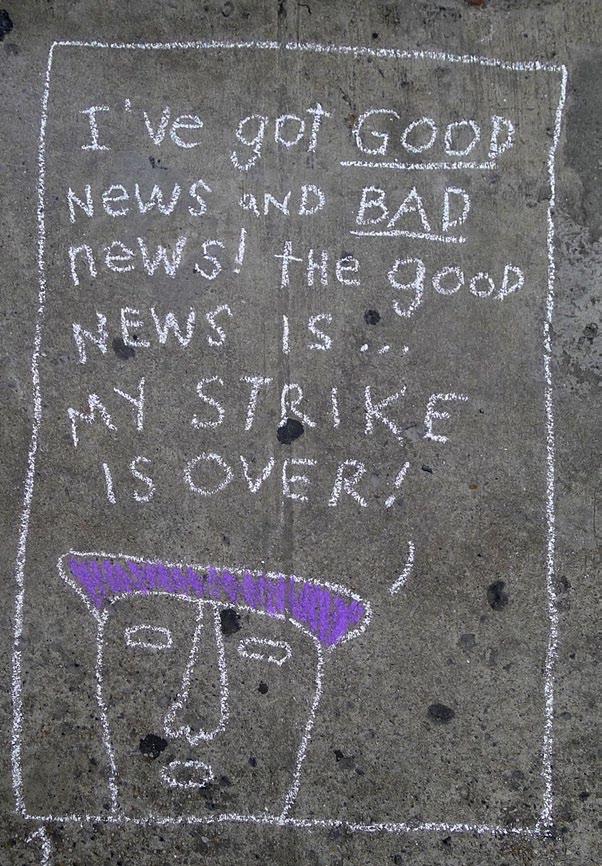 I've got GOOD
NEWS AND BAD
news! the good
NEWS IS...
MY STRIKE
IS OVER!
1